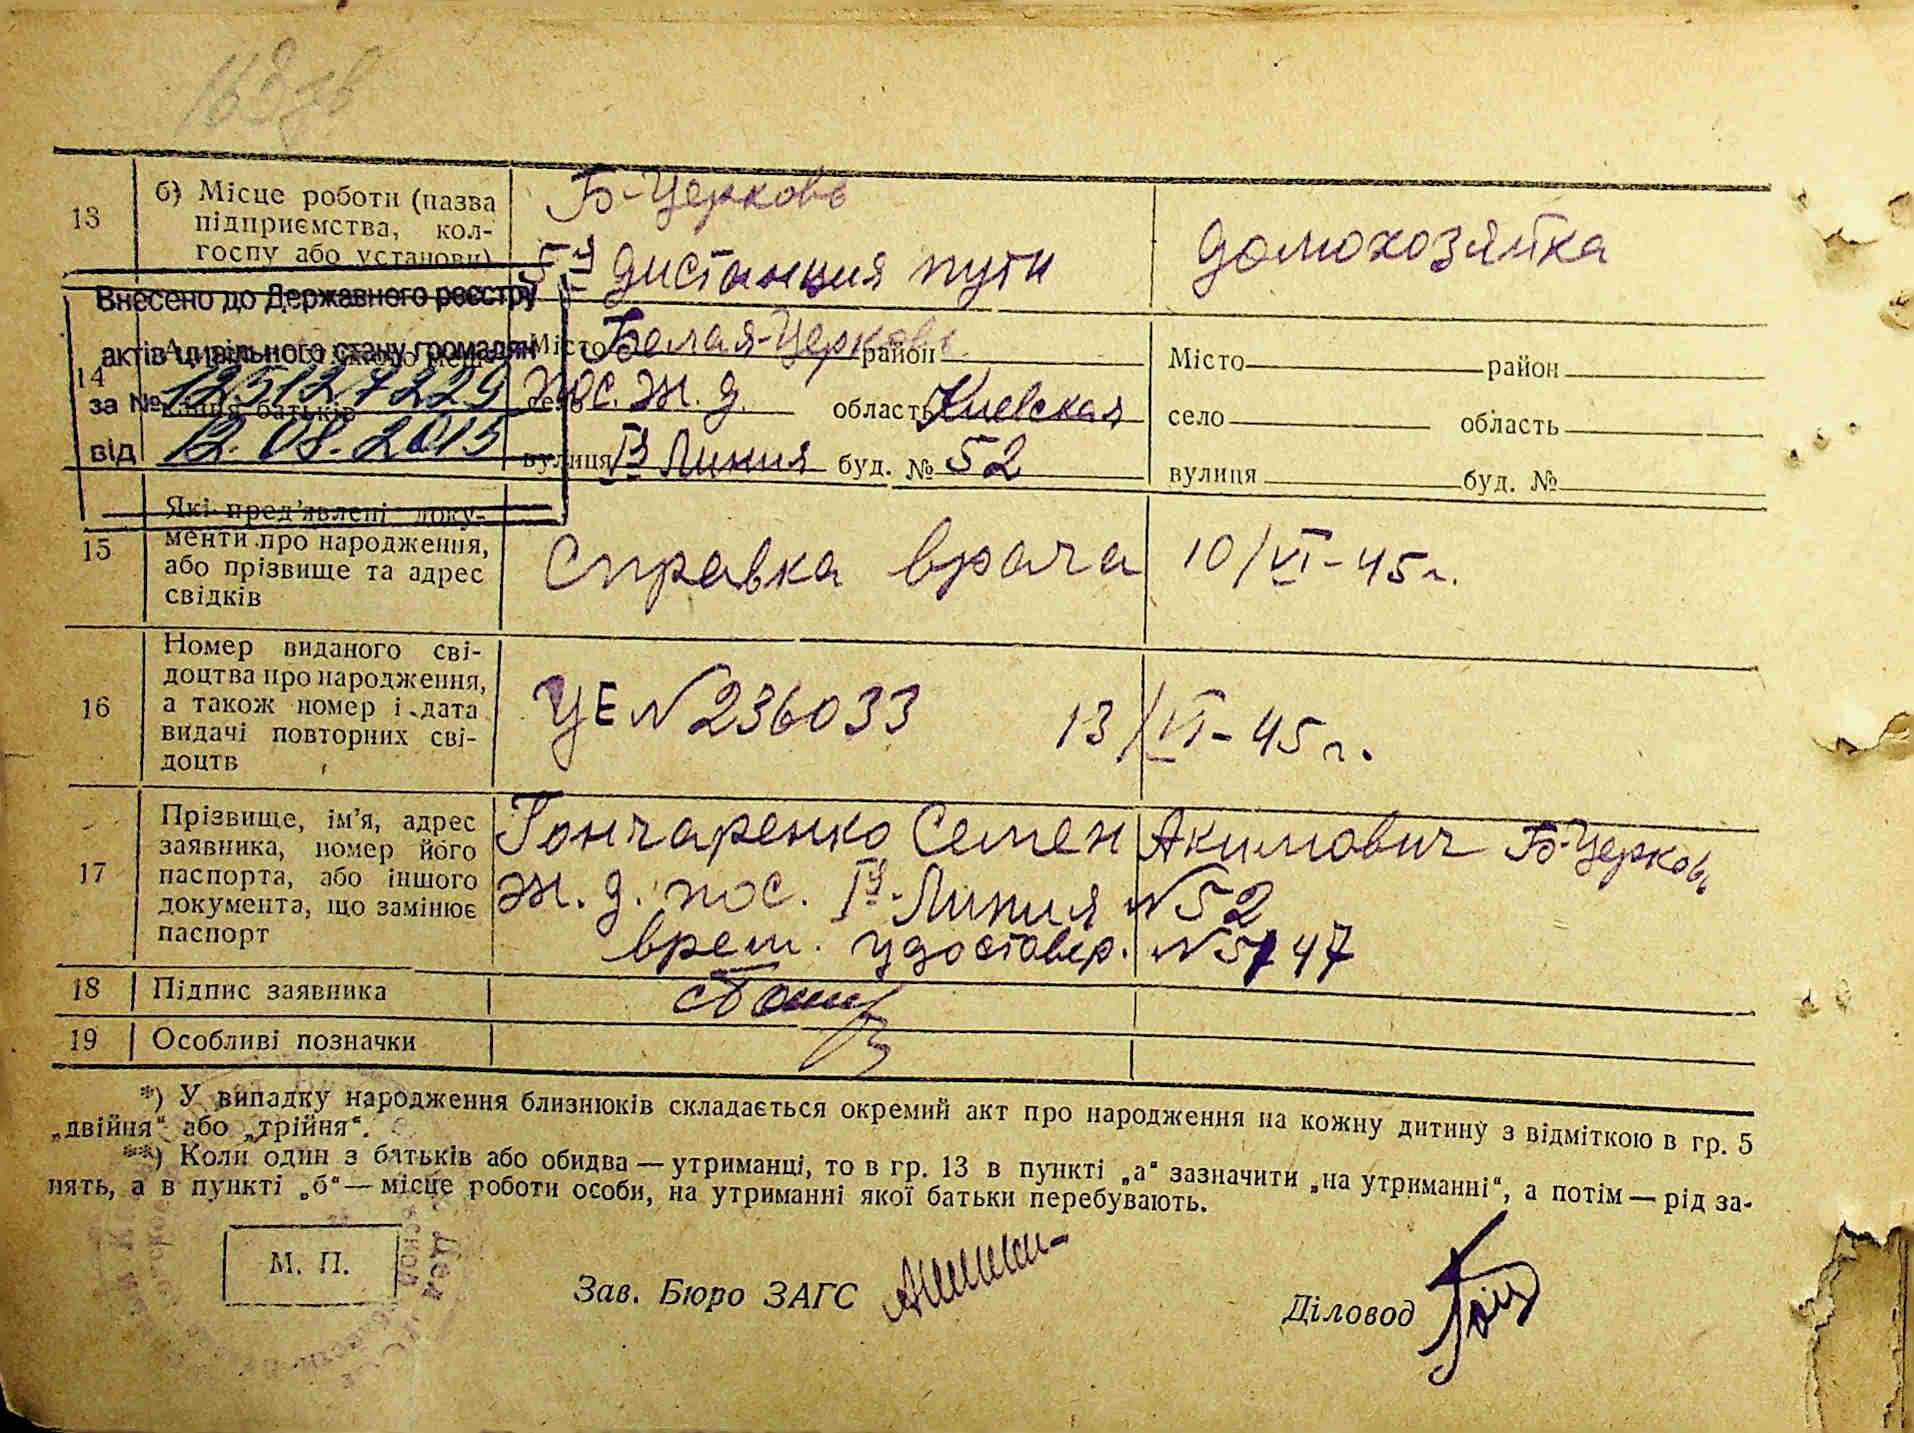 13
б) Місце роботи (назва
підприємства, кол-
госпу або установи)
Б-Церковь
5й дистанция пути
домохозяйка
Внесено до Державного реєстру
актів цивільного стану громадян
за № 125127229
від 12.08.2015
14
батьків
Місто Белая-Церковь район
село пос. ж. д. область Киевская
вулиця Iя Линия буд. № 52
Місто район
село область
вулиця буд. №
15
Які пред'явлені доку-
менти про народження,
або прізвище та адрес
свідків
Справка врача 10/VI-45г.
16
Номер виданого сві-
доцтва про народження,
а також номер і дата
видачі повторних сві-
доцтв
ЦЕ №236033 13/VI-45г.
17
Прізвище, ім'я, адрес
заявника, номер його
паспорта, або іншого
документа, що замінює
паспорт
Гончаренко Семен Акимович Б-Церковь
ж. д. пос. Iя-Линия №52
врем. удостовер. №5747
18 Підпис заявника
19 Особливі позначки
*) У випадку народження близнюків складається окремий акт про народження на кожну дитину з відміткою в гр. 5
„двійня“ або „трійня“.
**) Коли один з батьків або обидва — утриманці, то в гр. 13 в пункті „а“ зазначити „на утриманні“, а потім — рід за-
нять, а в пункті „б“ — місце роботи особи, на утриманні якої батьки перебувають.
М. П.
Зав. Бюро ЗАГС
Діловод